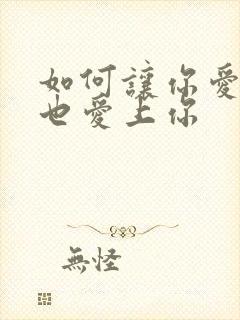 如何讓你愛
也愛上你
無怪